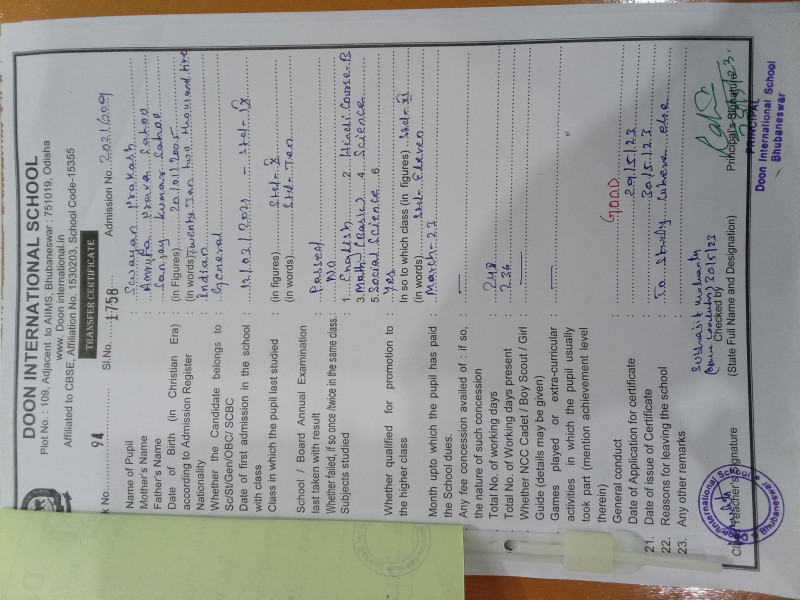 DOON INTERNATIONAL SCHOOL
Plot No. : 109, Adjacent to AIIMS, Bhubaneswar : 751019, Odisha
www. Doon international.in
Affiliated to CBSE, Affiliation No. 1530203, School Code-15355
TRANSFER CERTIFICATE
k No. 94 Sl.No. 1758 Admission No. 2021/609
Name of Pupil : Swayan Prakash
Mother's Name : Amruta Prava Sahoo
Father's Name : Sanjay Kumar Sahoo
Date of Birth (in Christian Era) (in Figures) 20/01/2005
according to Admission Register (in words) Twenty Jan two thousand five
Nationality : Indian
Whether the Candidate belongs to : General
Sc/St/Gen/OBC/ SCBC
Date of first admission in the school : 12/03/2021 - Std- IX
with class
Class in which the pupil last studied : (in figures) Std- X
(in words) Std- Ten
School / Board Annual Examination : Passed
last taken with result
Whether failed, if so once /twice in the same class. NO
Subjects studied : 1. English 2. Hindi Course-B
3. Math (Basic) 4. Science
5. Social Science 6
Whether qualified for promotion to : Yes
the higher class In so to which class (in figures) Std- XI
(in words) Std- Eleven
Month upto which the pupil has paid : March-23
the School dues.
Any fee concession availed of : if so, : —
the nature of such concession
Total No. of working days : 248
Total No. of Working days present : 236
Whether NCC Cadet / Boy Scout / Girl : —
Guide (details may be given)
Games played or extra-curricular : —
activities in which the pupil usually "
took part (mention achievement level
therein)
General conduct : GOOD
Date of Application for certificate : 29/5/23
21. Date of Issue of Certificate : 30/5/23
22. Reasons for leaving the school : To study where else
23. Any other remarks :
30/5/23
Class Teacher's Signature Checked by Principal's Signature
(State Full Name and Designation)
PRINCIPAL
Doon International School
Bhubaneswar